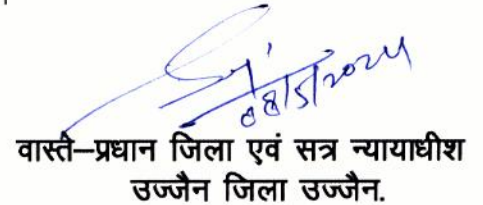 वास्ते–प्रधान जिला एवं सत्र न्यायाधीश
उज्जैन जिला उज्जैन.